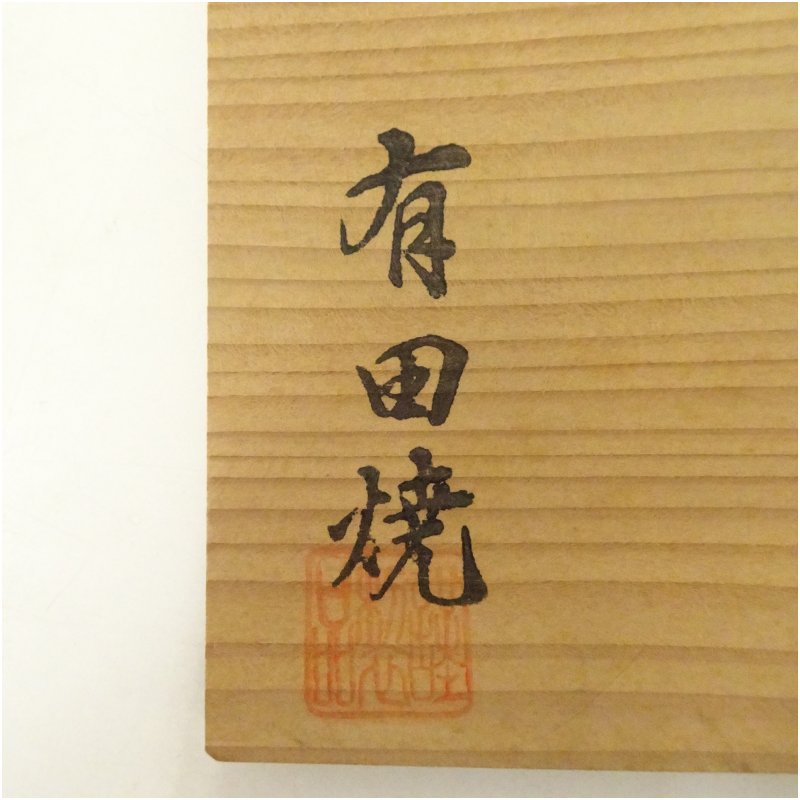 有田焼